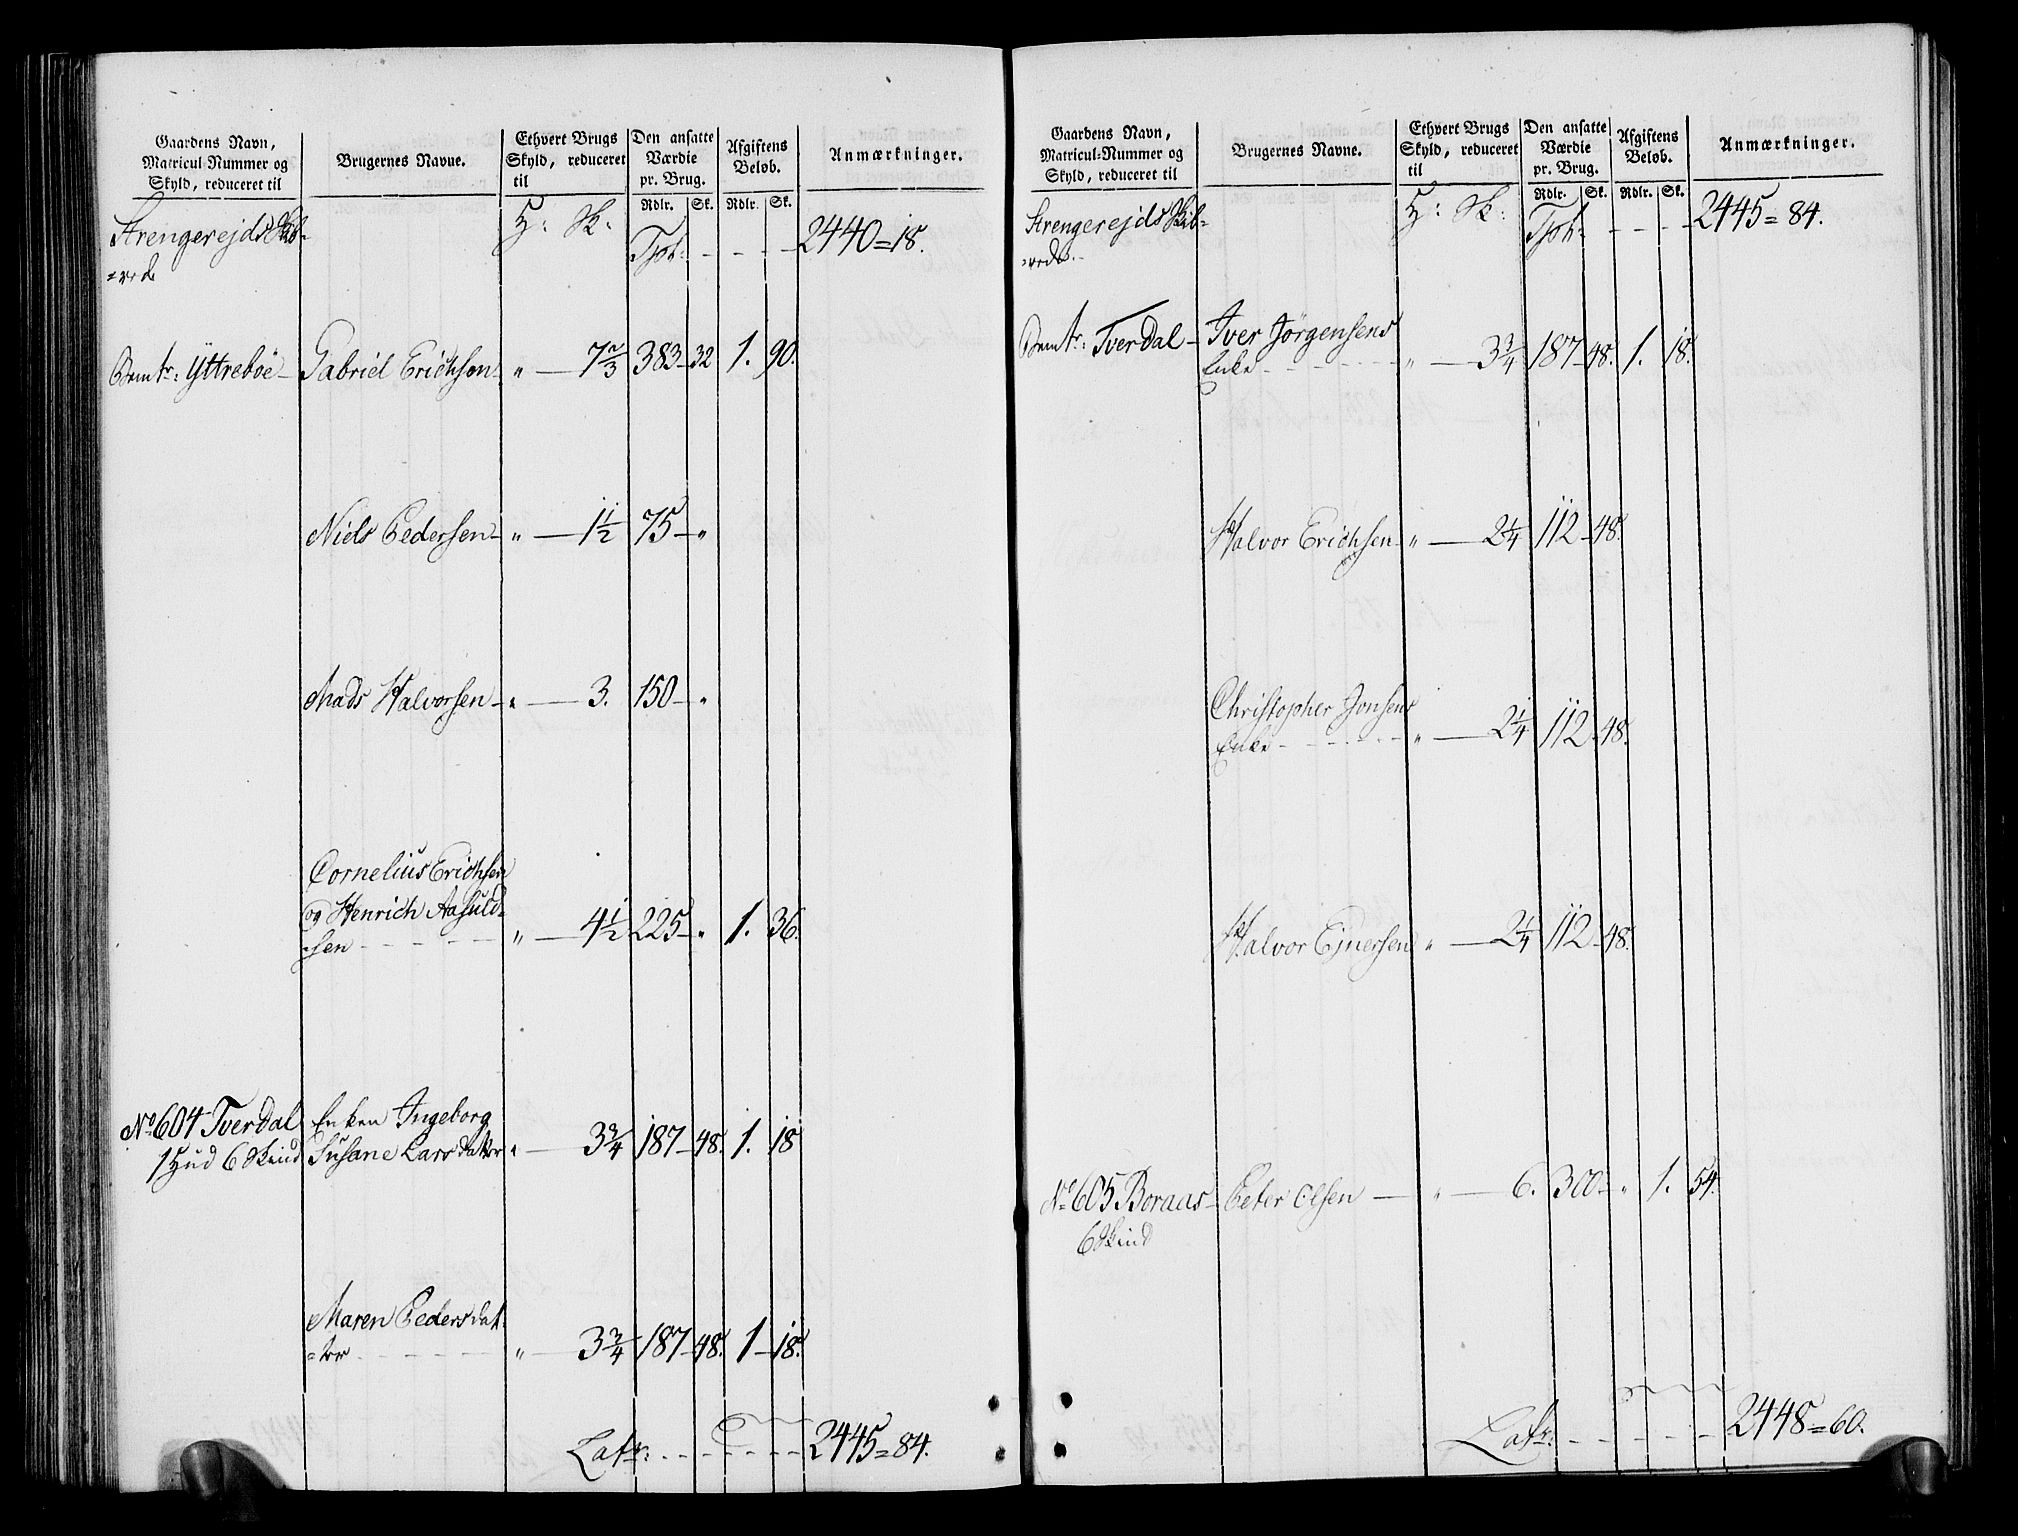 Gaardens Navn,
Matricul-Nummer og
Skyld, reduceret til
Brugernes Navne.
Ethvert Brugs
Skyld, reduceret
til
Den ansatte
Værdie
pr. Brug.
Afgiftens
Beløb.
Anmærkninger.
Rdlr. Sk. Rdlr. Sk.
Strengerejds Skib-
=rede
H: Sk:
Tsp: - - - - 2440=18.
Bemtr: Yttrebøe - Gabriel Erichsen - " - 7 2/3 383 - 32 1. 90.
Niels Pedersen - " - 1 1/2 75 - "
Mads Halvorsen - " - 3. 150 - "
Cornelius Erichsen
og Henrich Aasuld-
=sen - - - - - " - 4 1/2 225 - " 1. 36.
No 604 Tverdal Enken Ingeborg
1 Hud 6 Skind Susane Larsdatter " - 3 3/4 187 - 48. 1. 18
Maren Pedersdat-
=ter - - - - - " - 3 3/4 187 - 48. 1 - 18.
Latr: - - - - - 2445=84.
Gaardens Navn,
Matricul-Nummer og
Skyld, reduceret til
Brugernes Navne.
Ethvert Brugs
Skyld, reduceret
til
Den ansatte
Værdie
pr. Brug.
Afgiftens
Beløb.
Anmærkninger.
Rdlr. Sk. Rdlr. Sk.
Strengerejds Skib-
=rede -
H: Sk:
Tsp: - - - - 2445=84.
Bemtr: Tverdal - Iver Jørgensens
Enke - - - - - " - 3 3/4 187 - 48. 1. 18.
Halvor Erichsen - " - 2 1/4 112 - 48.
Christopher Jonsens
Enke - - - - - " - 2 1/4 112 - 48.
Halvor Ejnersen " - 2 1/4 112 - 48.
No 605 Boraas - Peter Olsen - " - 6. 300 - " 1. 54.
6 Skind
Latr: - - - - - 2448=60.